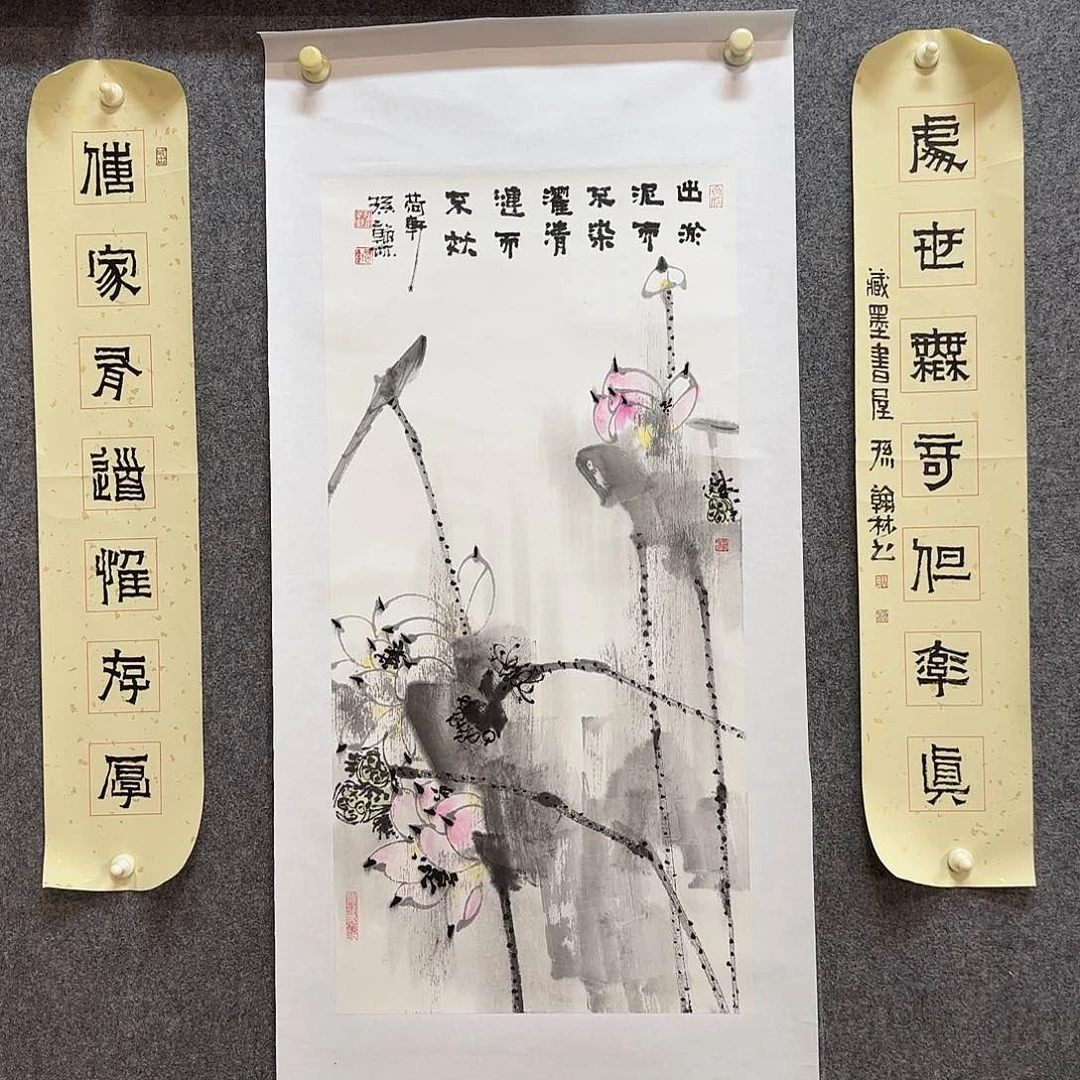 處世無奇但率真
藏墨書屋 孫 翰林书
出淤
泥而
不染
濯清
漣而
不妖
荷軒
孫
傳家有道惟存厚